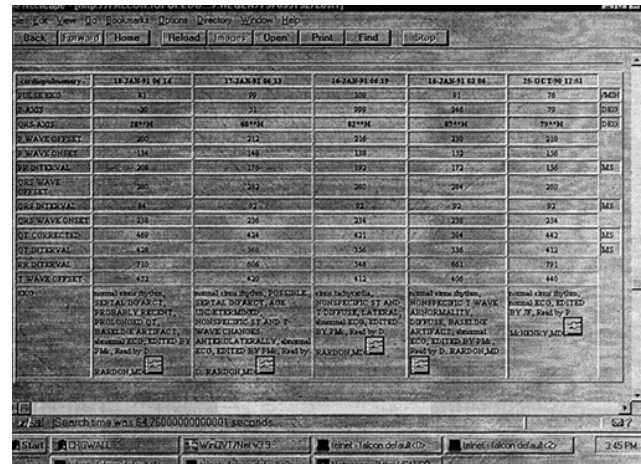 File Edit View Go Bookmarks Options Directory Window Help
Back Forward Home Reload Images Open Print Find Stop
cardiopulmonary 18-JAN-91 06:14 17-JAN-91 06:13 16-JAN-91 06:19 16-JAN-91 03:06 25-OCT-90 12:51
PULSE EKG 83 99 109 91 76 /MIN
P-AXIS 20 31 999 246 79 DEG
QRS-AXIS 28**H 68**H 82**H 87**H 79**H DEG
P WAVE OFFSET 200 212 216 230 210
P WAVE ONSET 134 148 138 152 156
PR INTERVAL 208 176 192 172 156 MS
QRS WAVE
OFFSET 280 282 280 284 280
QRS INTERVAL 84 92 92 92 92 MS
QRS WAVE ONSET 238 236 234 238 234
QT CORRECTED 469 424 421 384 442 MS
QT INTERVAL 428 368 356 336 412 MS
RR INTERVAL 710 606 548 661 791
T WAVE OFFSET 452 420 412 406 440
EKG
normal sinus rhythm,
SEPTAL INFARCT,
PROBABLY RECENT,
PROLONGED QT,
BASELINE ARTIFACT,
abnormal ECG, EDITED BY
PMc, Read by D.
RARDON,MD
normal sinus rhythm, POSSIBLE
SEPTAL INFARCT, AGE
UNDETERMINED,
NONSPECIFIC ST AND T
WAVE CHANGES
ANTEROLATERALLY, abnormal
ECG, EDITED BY PMc, Read by
D. RARDON,MD
sinus tachycardia,
NONSPECIFIC ST AND
T DIFFUSE, LATERAL,
abnormal EKG, EDITED
BY PMc, Read by D.
RARDON,MD
normal sinus rhythm,
NONSPECIFIC T WAVE
ABNORMALITY,
DIFFUSE, BASELINE
ARTIFACT, abnormal
ECG, EDITED BY PMc,
Read by D. RARDON,MD
normal sinus rhythm,
normal ECG, EDITED
BY JF, Read by P.
McHENRY,MD
Search time was 64.76000000000001 seconds.
Start CHGWALL WinQVT/Net v3.9 telnet - falcon default<0> telnet - falcon default<2> 3:45 PM